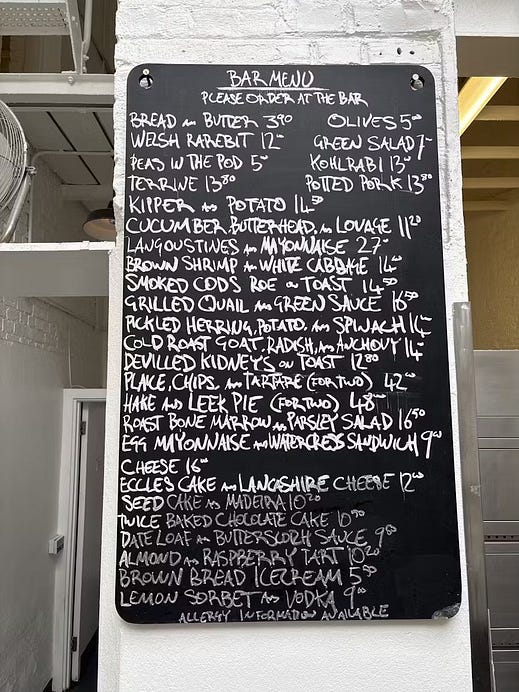 BAR MENU
PLEASE ORDER AT THE BAR
BREAD AND BUTTER 3.90 OLIVES 5.00
WELSH RAREBIT 12.00 GREEN SALAD 7.00
PEAS IN THE POD 5.00 KOHLRABI 13.00
TERRINE 13.80 POTTED PORK 13.80
KIPPER AND POTATO 14.50
CUCUMBER, BUTTERHEAD, AND LOVAGE 11.20
LANGOUSTINES AND MAYONNAISE 27.00
BROWN SHRIMP AND WHITE CABBAGE 14.00
SMOKED CODS ROE ON TOAST 14.50
GRILLED QUAIL AND GREEN SAUCE 16.50
PICKLED HERRING, POTATO, AND SPINACH 14.00
COLD ROAST GOAT, RADISH, AND ANCHOVY 14.00
DEVILLED KIDNEYS ON TOAST 12.80
PLAICE, CHIPS, AND TARTARE (FOR TWO) 42.00
HAKE AND LEEK PIE (FOR TWO) 48.00
ROAST BONE MARROW AND PARSLEY SALAD 16.50
EGG MAYONNAISE AND WATERCRESS SANDWICH 9.00
CHEESE 16.00
ECCLES CAKE AND LANCASHIRE CHEESE 12.00
SEED CAKE AND MADEIRA 10.20
TWICE BAKED CHOCOLATE CAKE 10.50
DATE LOAF AND BUTTERSCOTCH SAUCE 9.80
ALMOND AND RASPBERRY TART 10.20
BROWN BREAD ICECREAM 5.50
LEMON SORBET AND VODKA 9.00
ALLERGY INFORMATION AVAILABLE